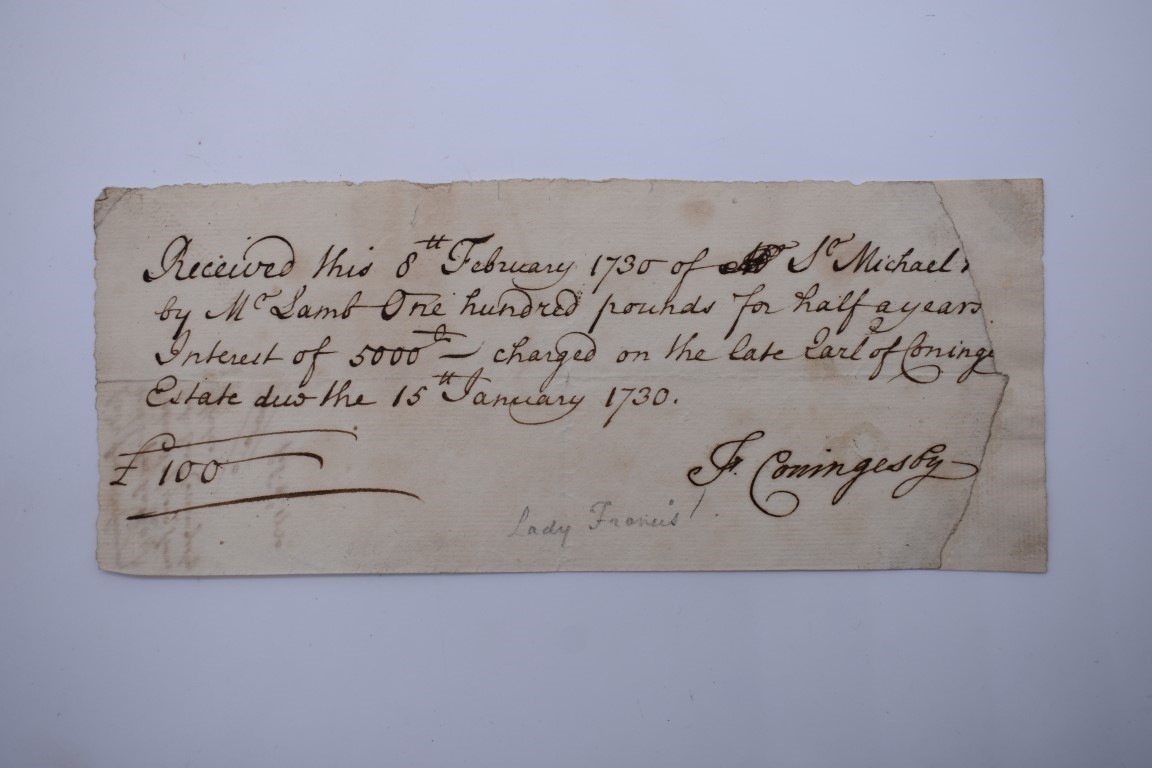 Received this 8th February 1730 of Sr Michael
by Mr Lamb One hundred pounds for half a years
Interest of 5000£ — charged on the late Earl of Coninge
Estate due the 15th January 1730.
£ 100
Fr. Coningesby
Lady Francis